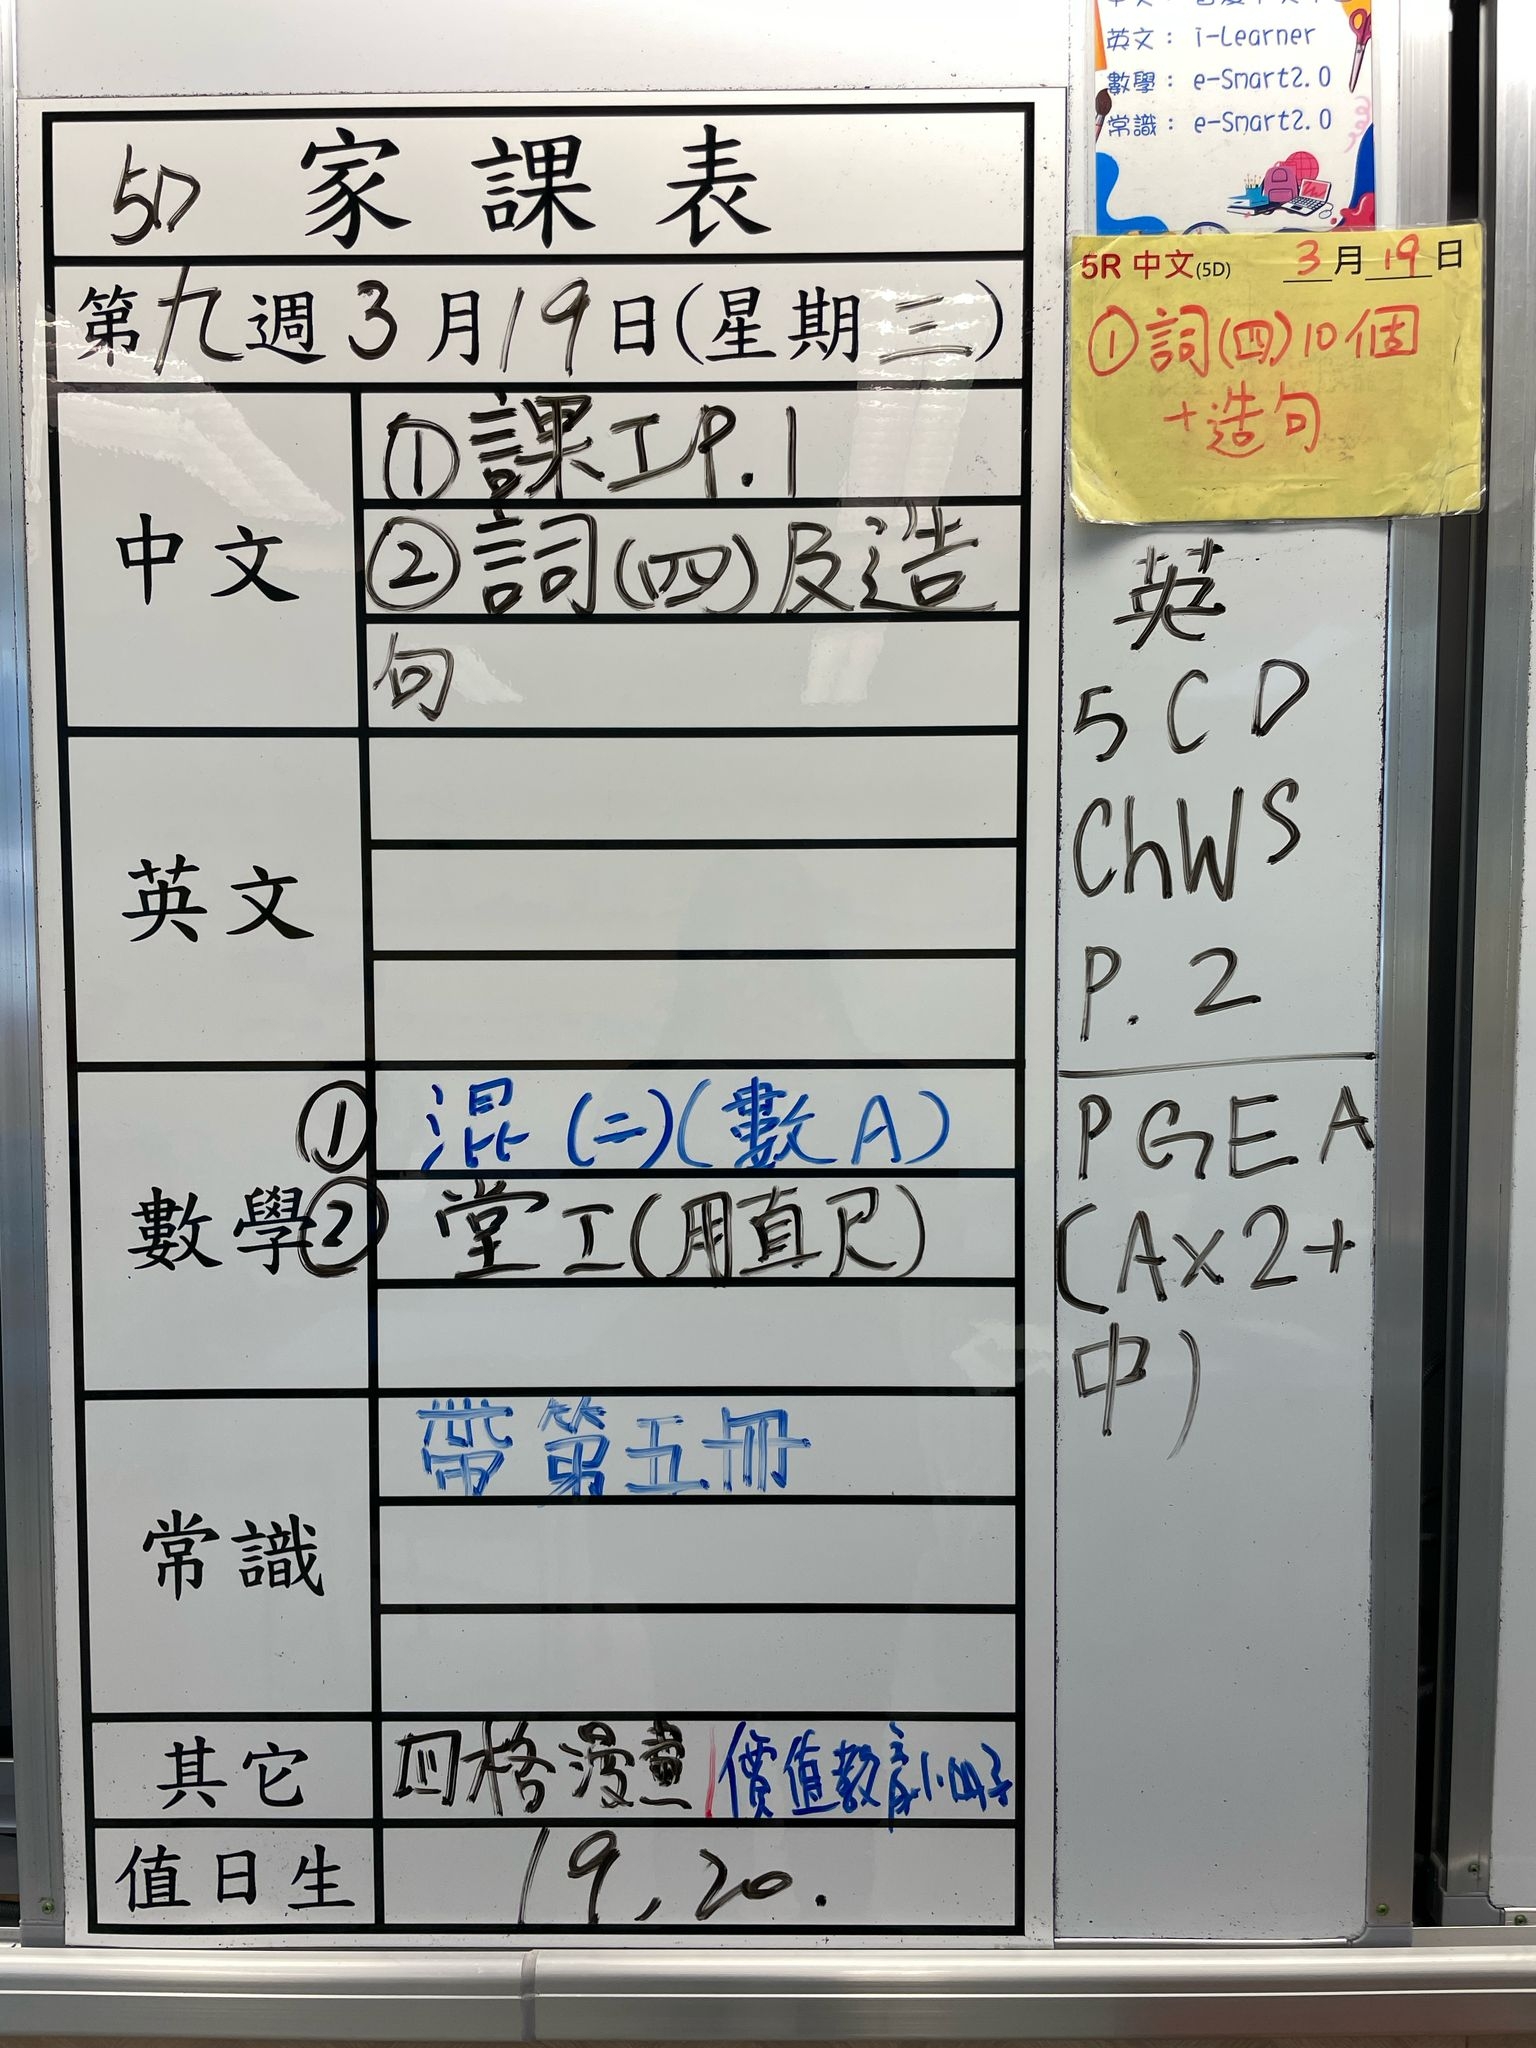 5D 家課表
第九週3月19日(星期三)
中文
①課工P.1
②詞(四)及造
句
英文
數學
① 混(二)(數A)
② 堂工(用直尺)
常識
帶第五冊
其它
四格漫畫|價值教育小冊子
值日生
19, 20.
英文: i-Learner
數學: e-Smart2.0
常識: e-Smart2.0
5R 中文(5D) 3月19日
①詞(四)10個
+造句
英
5CD
ChWS
P.2
PGEA
(A×2+
中)